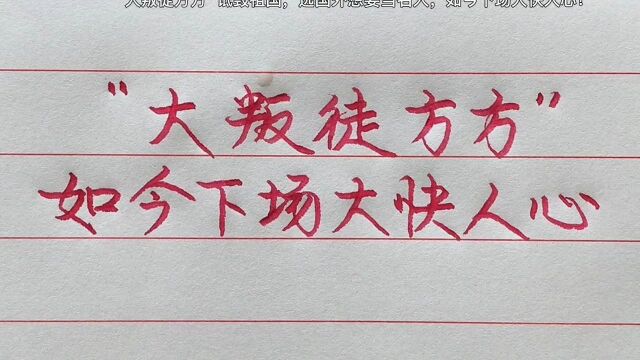 "大叛徒方方"
如今下场大快人心